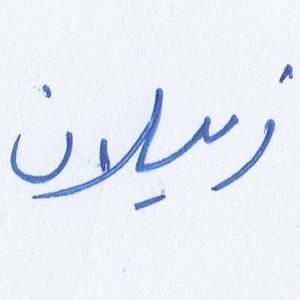 زميلان